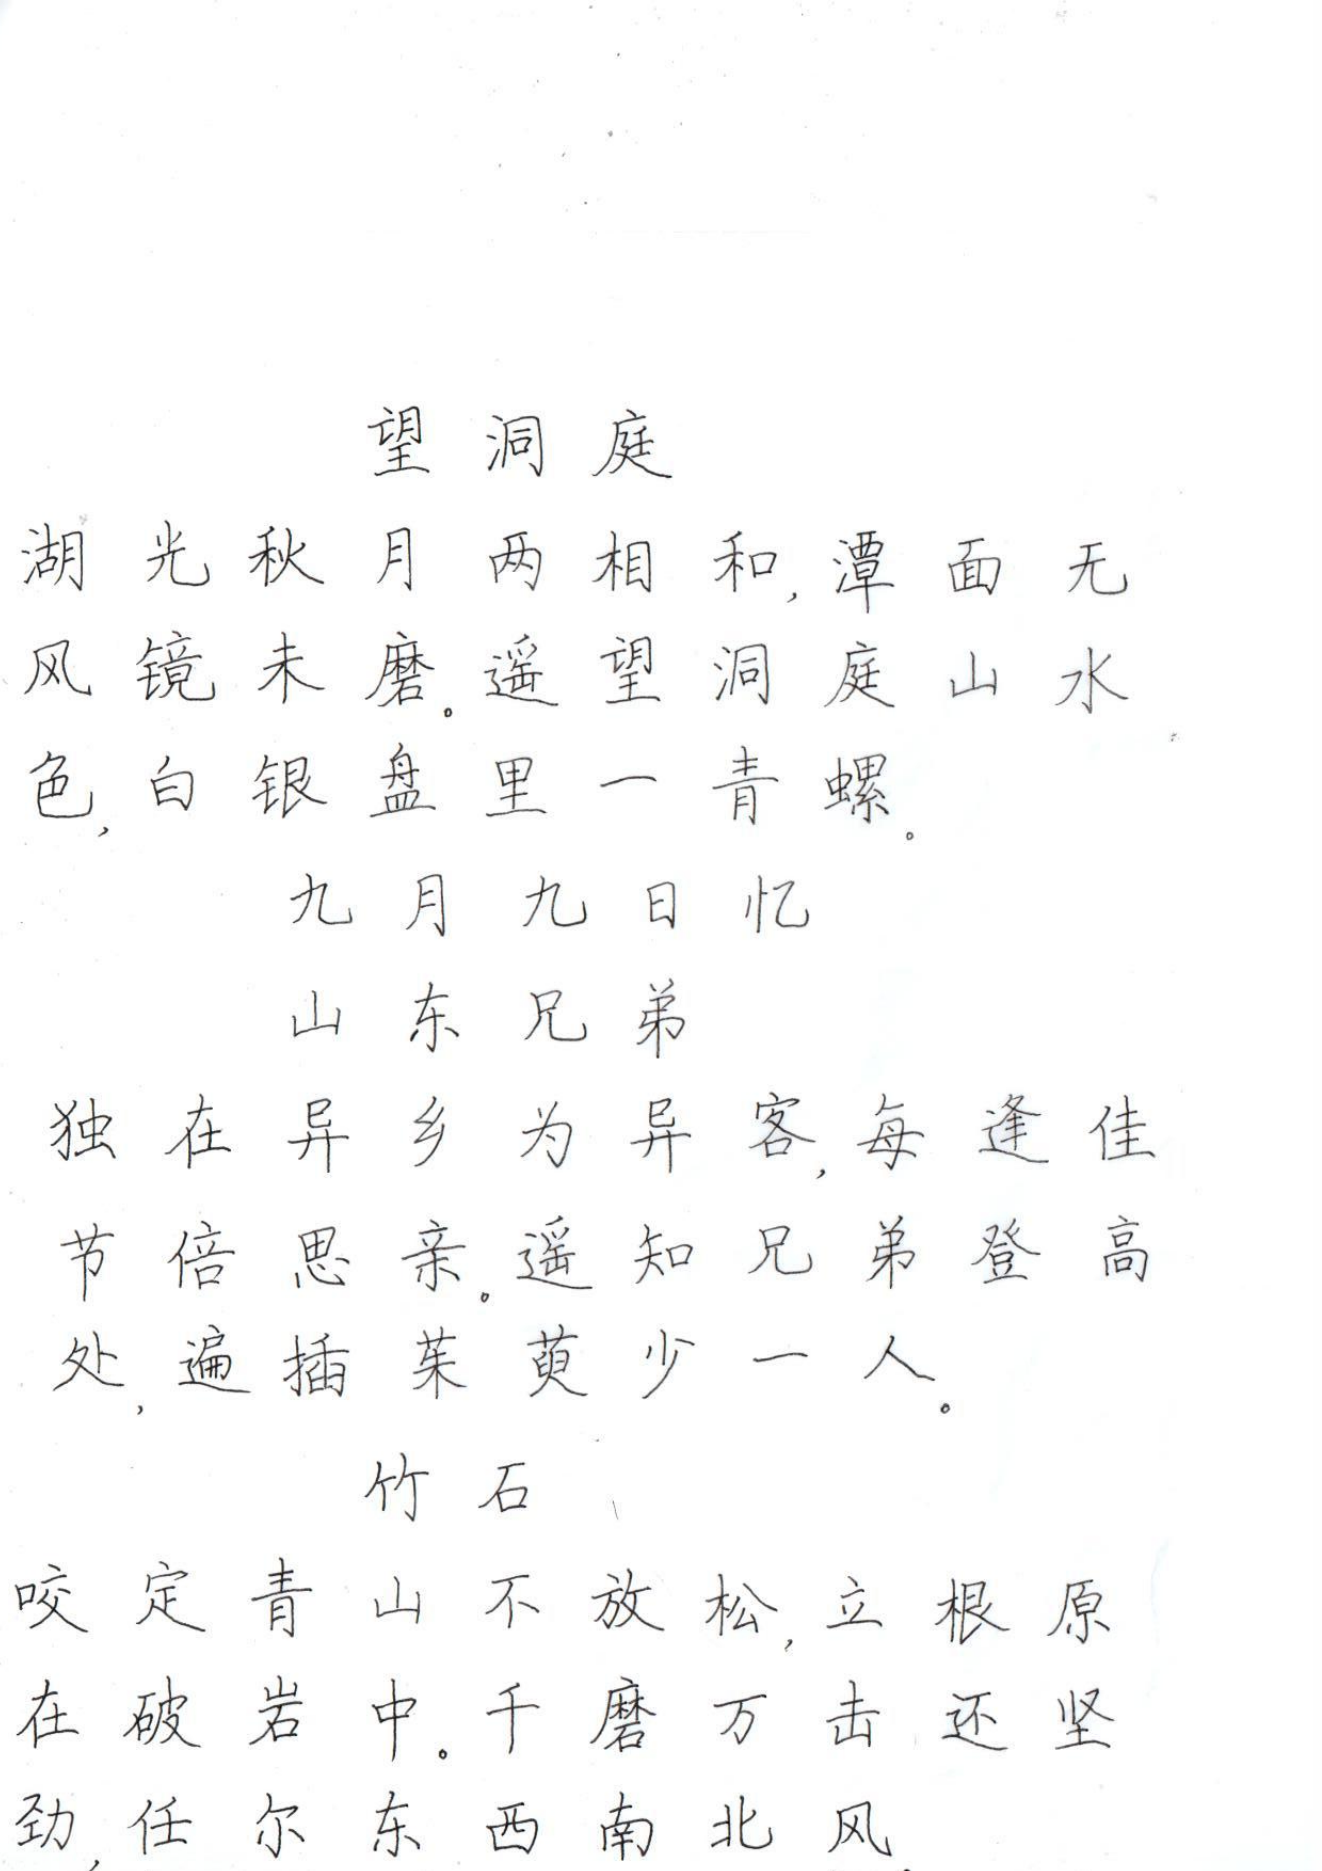 望洞庭
湖光秋月两相和,潭面无
风镜未磨。遥望洞庭山水
色,白银盘里一青螺。
九月九日忆
山东兄弟
独在异乡为异客,每逢佳
节倍思亲。遥知兄弟登高
处,遍插茱萸少一人。
竹石
咬定青山不放松,立根原
在破岩中。千磨万击还坚
劲,任尔东西南北风。